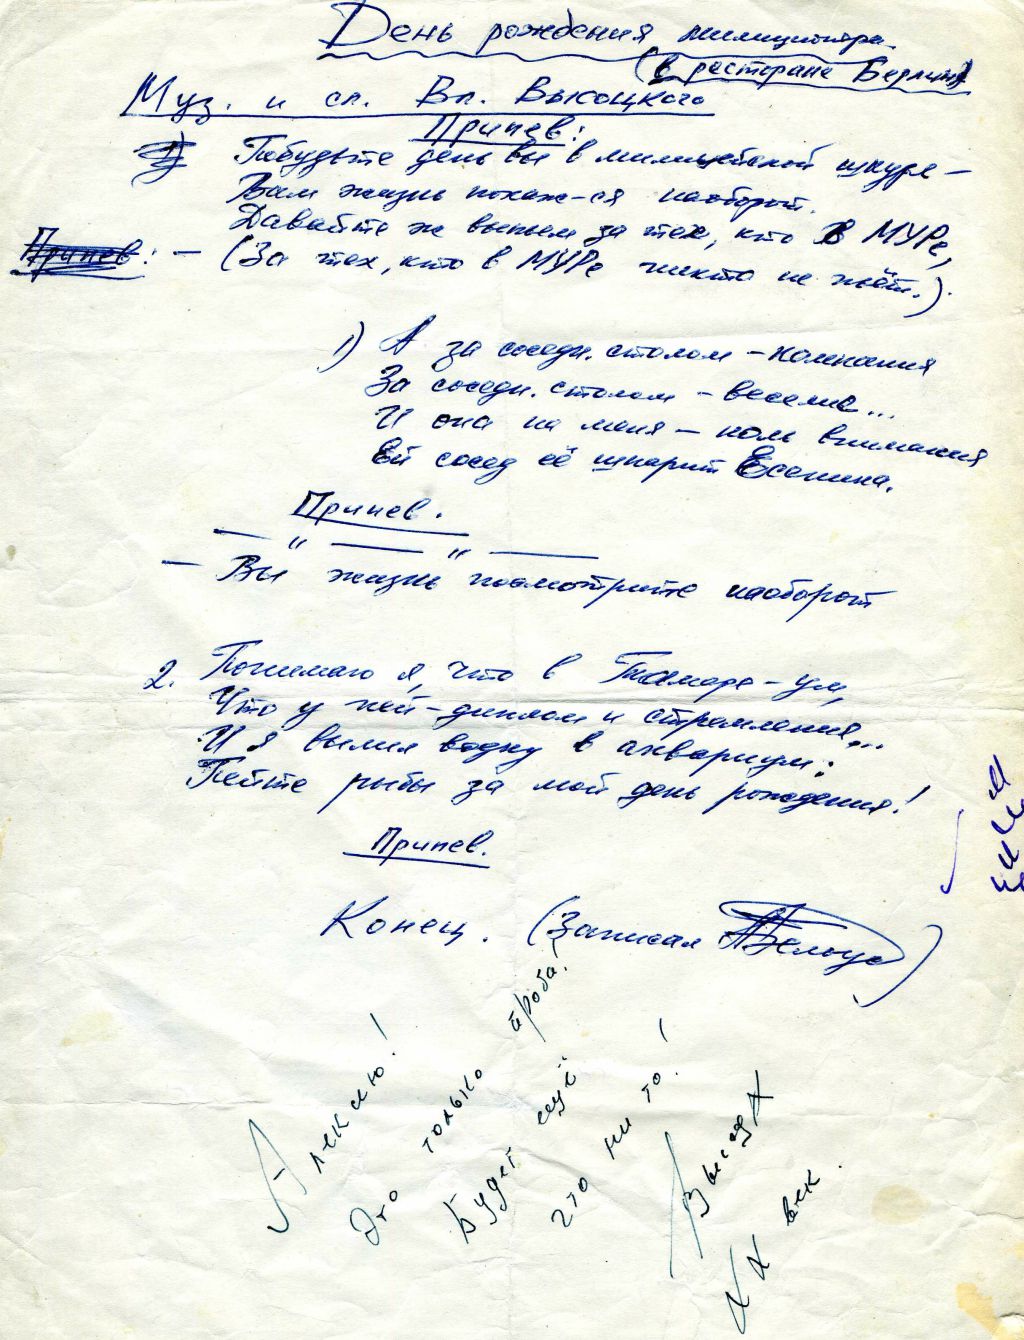 День рождения милиционера
(в ресторане Берлин)
Муз. и сл. Вл. Высоцкого
Припев:
Побудьте день вы в милицейской шкуре —
Вам жизнь покаж-ся наоборот.
Давайте ж выпьем за тех, кто в МУРе,
Припев: — (За тех, кто в МУРе никто не пьёт.).
1) А за соседн. столом – компания
За соседн. столом – веселие...
И она на меня – ноль внимания
Ей сосед её шпарит Есенина.
Припев.
— " — " —
— Вы жизнь посмотрите наоборот
2. Понимаю я, что в Тамаре – ум,
Что у ней – диплом и стремления...
И я вылил водку в аквариум:
Пейте рыбы за мой день рождения!
Припев.
Конец. (Записал)
Алексею!
Это только проба!
Будет ещё
что ни то!
ХХ век.